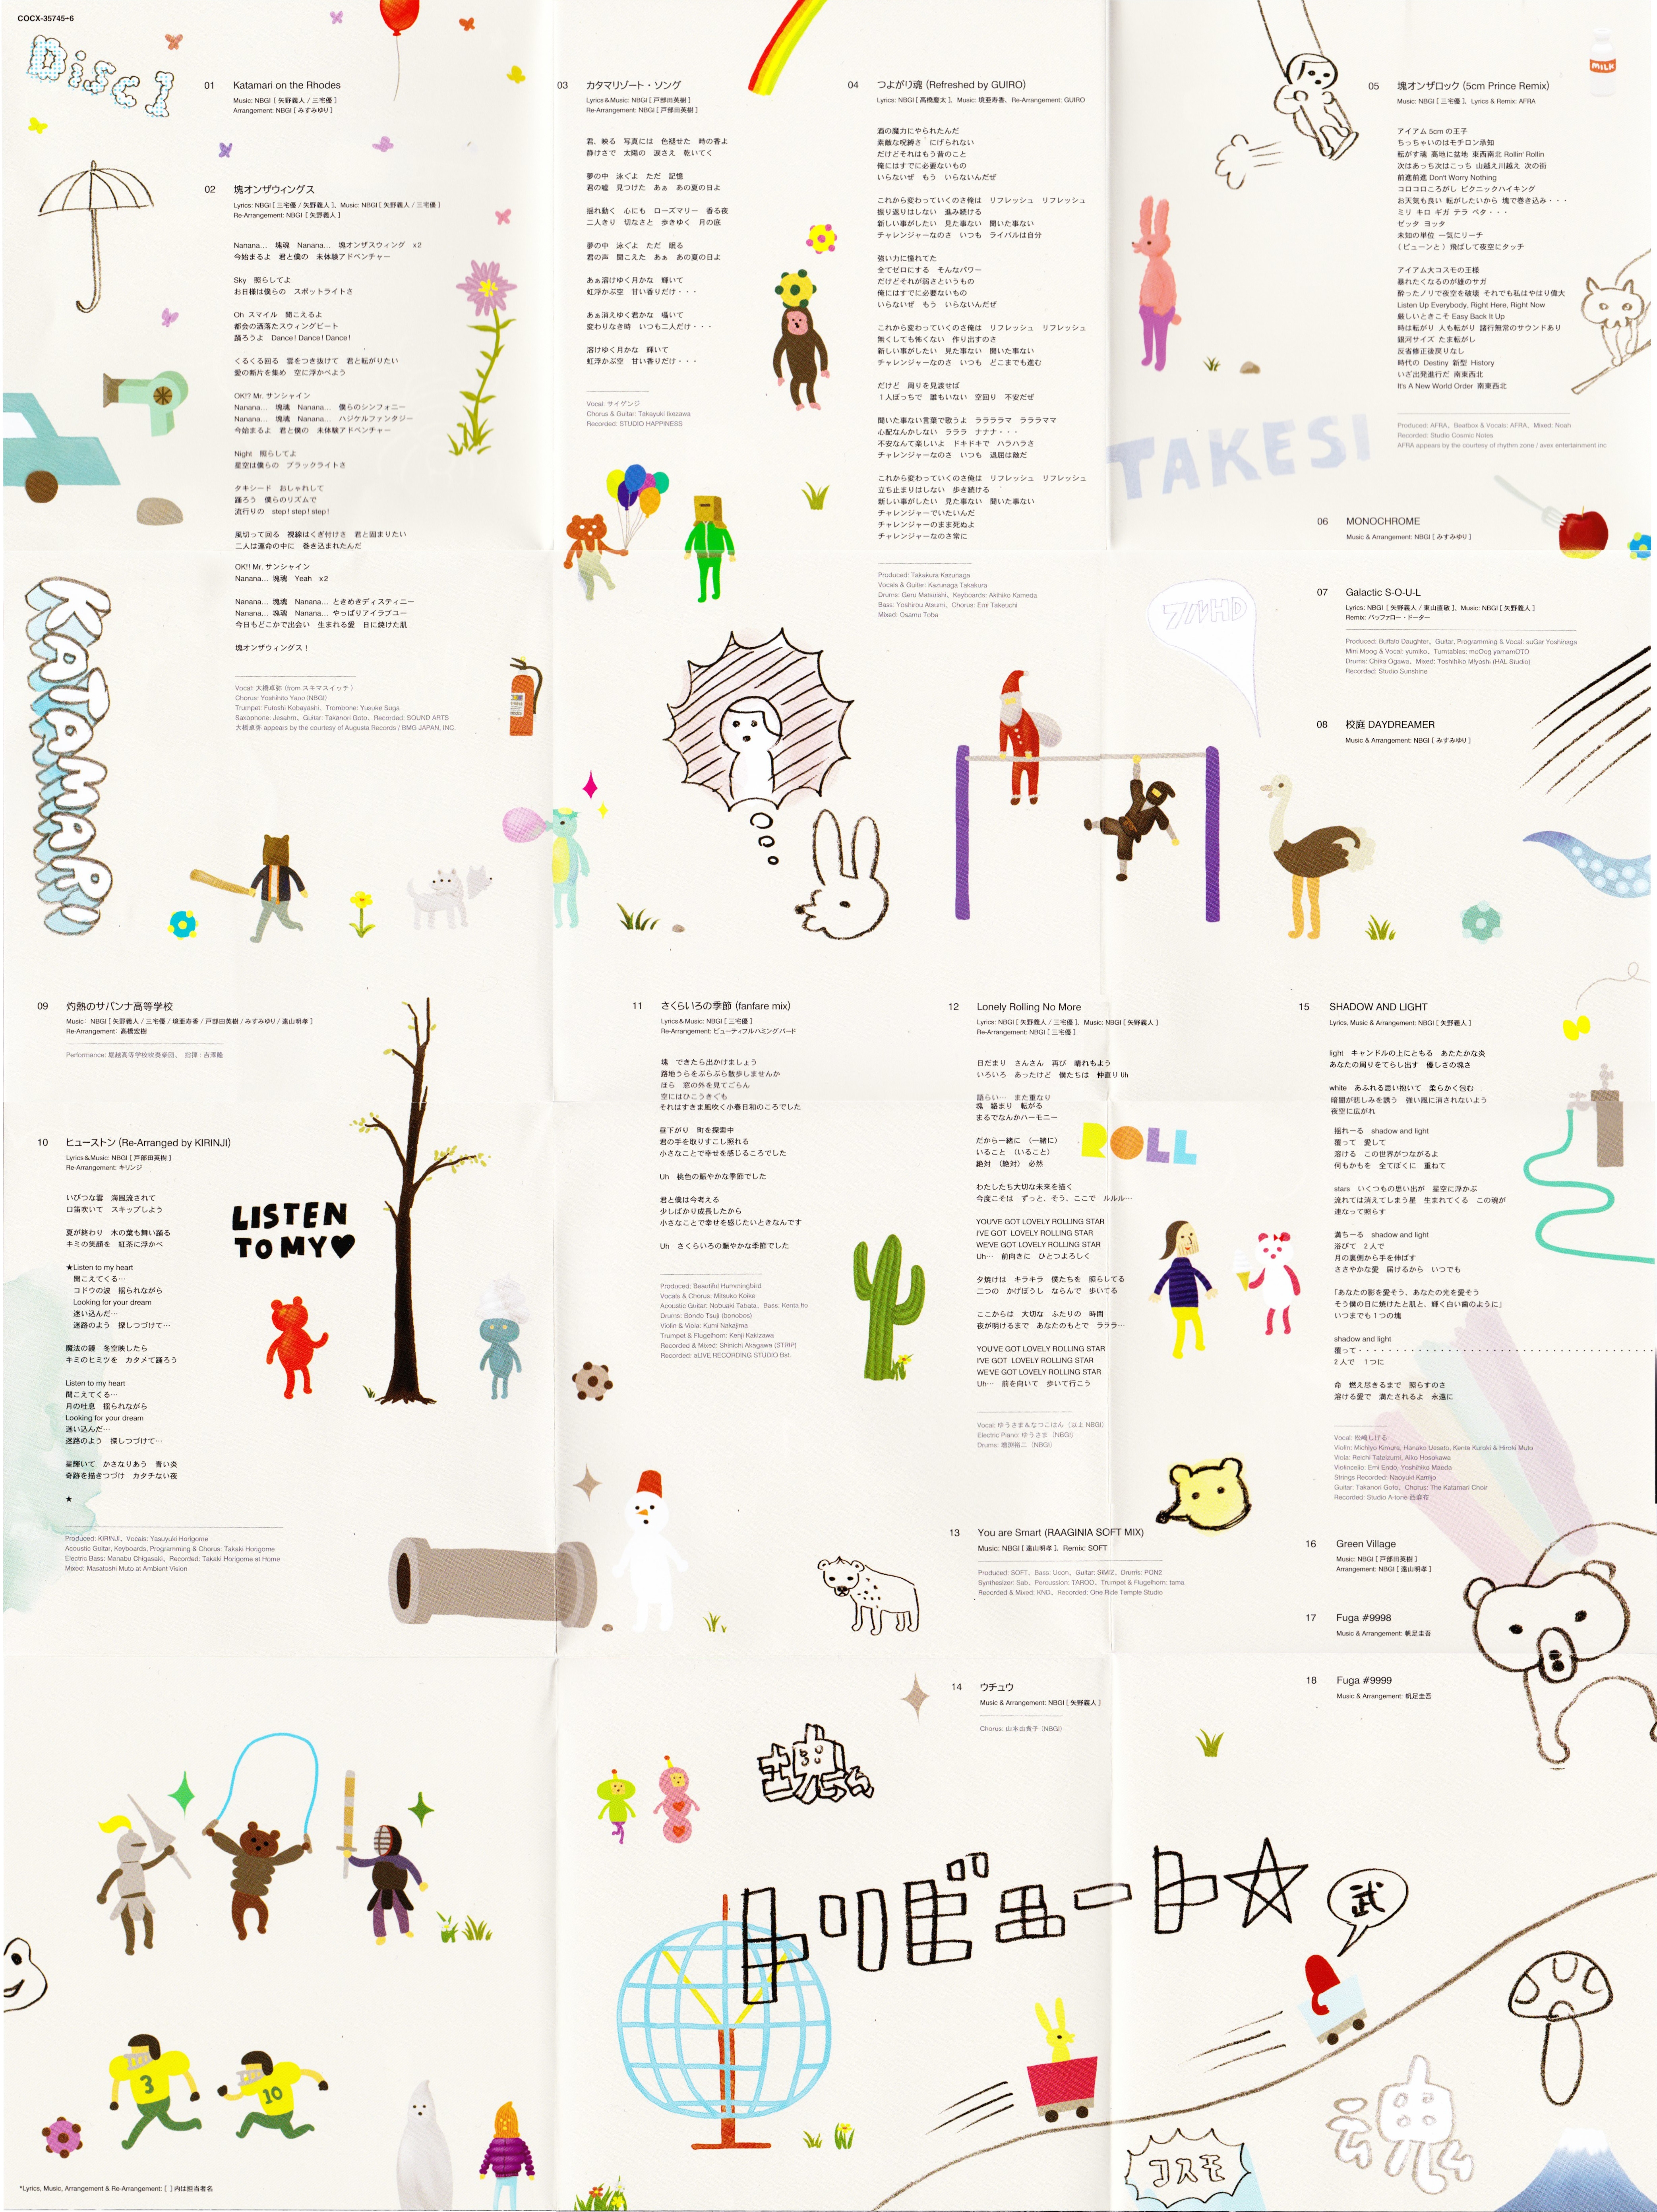 COCX-35745→6
Disc1
01 Katamari on the Rhodes
Music: NBGI [ 矢野義人 / 三宅優 ]
Arrangement: NBGI [ みすみゆり ]
02 塊オンザウィングス
Lyrics: NBGI [ 三宅優 / 矢野義人 ]、Music: NBGI [ 矢野義人 / 三宅優 ]
Re-Arrangement: NBGI [ 矢野義人 ]
Nanana… 塊魂 Nanana… 塊オンザスウィング x2
今始まるよ 君と僕の 未体験アドベンチャー
Sky 照らしてよ
お日様は僕らの スポットライトさ
Oh スマイル 聞こえるよ
都会の洒落たスウィングビート
踊ろうよ Dance! Dance! Dance!
くるくる回る 雲をつき抜けて 君と転がりたい
愛の断片を集め 空に浮かべよう
OK!? Mr. サンシャイン
Nanana… 塊魂 Nanana… 僕らのシンフォニー
Nanana… 塊魂 Nanana… ハジケルファンタジー
今始まるよ 君と僕の 未体験アドベンチャー
Night 照らしてよ
星空は僕らの ブラックライトさ
タキシード おしゃれして
踊ろう 僕らのリズムで
流行りの step! step! step!
風切って回る 視線はくぎ付けさ 君と固まりたい
二人は運命の中に 巻き込まれたんだ
OK!! Mr. サンシャイン
Nanana… 塊魂 Yeah x2
Nanana… 塊魂 Nanana… ときめきディスティニー
Nanana… 塊魂 Nanana… やっぱりアイラブユー
今日もどこかで出会い 生まれる愛 日に焼けた肌
塊オンザウィングス！
Vocal: 大橋卓弥 (from スキマスイッチ )
Chorus: Yoshihito Yano (NBGI)
Trumpet: Futoshi Kobayashi、Trombone: Yusuke Suga
Saxophone: Jesahm、Guitar: Takanori Goto、Recorded: SOUND ARTS
大橋卓弥 appears by the courtesy of Augusta Records / BMG JAPAN, INC.
03 カタマリゾート・ソング
Lyrics&Music: NBGI [ 戸部田英樹 ]
Re-Arrangement: NBGI [ 戸部田英樹 ]
君、映る 写真には 色褪せた 時の香よ
静けさで 太陽の 涙さえ 乾いてく
夢の中 泳ぐよ ただ 記憶
君の嘘 見つけた あぁ あの夏の日よ
揺れ動く 心にも ローズマリー 香る夜
二人きり 切なさと 歩きゆく 月の底
夢の中 泳ぐよ ただ 眠る
君の声 聞こえた あぁ あの夏の日よ
あぁ溶けゆく月かな 輝いて
虹浮かぶ空 甘い香りだけ・・・
あぁ消えゆく君かな 囁いて
変わりなき時 いつも二人だけ・・・
溶けゆく月かな 輝いて
虹浮かぶ空 甘い香りだけ・・・
Vocal: サイゲンジ
Chorus & Guitar: Takayuki Ikezawa
Recorded: STUDIO HAPPINESS
04 つよがり魂 (Refreshed by GUIRO)
Lyrics: NBGI [ 高橋慶太 ]、Music: 境亜寿香、Re-Arrangement: GUIRO
酒の魔力にやられたんだ
素敵な呪縛さ にげられない
だけどそれはもう昔のこと
俺にはすでに必要ないもの
いらないぜ もう いらないんだぜ
これから変わっていくのさ俺は リフレッシュ リフレッシュ
振り返りはしない 進み続ける
新しい事がしたい 見た事ない 聞いた事ない
チャレンジャーなのさ いつも ライバルは自分
強い力に憧れてた
全てゼロにする そんなパワー
だけどそれが弱さというもの
俺にはすでに必要ないもの
いらないぜ もう いらないんだぜ
これから変わっていくのさ俺は リフレッシュ リフレッシュ
無くしても怖くない 作り出すのさ
新しい事がしたい 見た事ない 聞いた事ない
チャレンジャーなのさ いつも どこまでも進む
だけど 周りを見渡せば
１人ぼっちで 誰もいない 空回り 不安だぜ
聞いた事ない言葉で歌うよ ララララマ ララララママ
心配なんかしない ラララ ナナナ・・・
不安なんて楽しいよ ドキドキで ハラハラさ
チャレンジャーなのさ いつも 退屈は敵だ
これから変わっていくのさ俺は リフレッシュ リフレッシュ
立ち止まりはしない 歩き続ける
新しい事がしたい 見た事ない 聞いた事ない
チャレンジャーでいたいんだ
チャレンジャーのまま死ぬよ
チャレンジャーなのさ常に
Produced: Takakura Kazunaga
Vocals & Guitar: Kazunaga Takakura
Drums: Geru Matsuishi、Keyboards: Akihiko Kameda
Bass: Yoshirou Atsumi、Chorus: Emi Takeuchi
Mixed: Osamu Toba
05 塊オンザロック (5cm Prince Remix)
Music: NBGI [ 三宅優 ]、Lyrics & Remix: AFRA
アイアム 5cm の王子
ちっちゃいのはモチロン承知
転がす魂 高地に盆地 東西南北 Rollin' Rollin
次はあっち次はこっち 山越え川越え 次の街
前進前進 Don't Worry Nothing
コロコロころがし ピクニックハイキング
お天気も良い 転がしたいから 塊で巻き込み・・・
ミリ キロ ギガ テラ ペタ・・・
ゼッタ ヨッタ
未知の単位 一気にリーチ
( ビューンと ) 飛ばして夜空にタッチ
アイアム大コスモの王様
暴れたくなるのが雄のサガ
酔ったノリで夜空を破壊 それでも私はやはり偉大
Listen Up Everybody, Right Here, Right Now
厳しいときこそ Easy Back It Up
時は転がり 人も転がり 諸行無常のサウンドあり
銀河サイズ たま転がし
反省修正後戻りなし
時代の Destiny 新型 History
いざ出発進行だ 南東西北
It's A New World Order 南東西北
Produced: AFRA、Beatbox & Vocals: AFRA、Mixed: Noah
Recorded: Studio Cosmic Notes
AFRA appears by the courtesy of rhythm zone / avex entertainment inc
MILK
TAKESI
06 MONOCHROME
Music & Arrangement: NBGI [ みすみゆり ]
フルHD
07 Galactic S-O-U-L
Lyrics: NBGI [ 矢野義人 / 東山直敬 ]、Music: NBGI [ 矢野義人 ]
Remix: バッファロー・ドーター
Produced: Buffalo Daughter、Guitar, Programming & Vocal: suGar Yoshinaga
Mini Moog & Vocal: yumiko、Turntables: moOog yamamOTO
Drums: Chika Ogawa、Mixed: Toshihiko Miyoshi (HAL Studio)
Recorded: Studio Sunshine
08 校庭 DAYDREAMER
Music & Arrangement: NBGI [ みすみゆり ]
KATAMARI
09 灼熱のサバンナ高等学校
Music: NBGI [ 矢野義人 / 三宅優 / 境亜寿香 / 戸部田英樹 / みすみゆり / 遠山明孝 ]
Re-Arrangement: 高橋宏樹
Performance: 堀越高等学校吹奏楽団、 指揮 : 吉澤隆
10 ヒューストン (Re-Arranged by KIRINJI)
Lyrics&Music: NBGI [ 戸部田英樹 ]
Re-Arrangement: キリンジ
いびつな雲 海風流されて
口笛吹いて スキップしよう
夏が終わり 木の葉も舞い踊る
キミの笑顔を 紅茶に浮かべ
★Listen to my heart
聞こえてくる…
コドウの波 揺られながら
Looking for your dream
迷い込んだ…
迷路のよう 探しつづけて…
魔法の鏡 冬空映したら
キミのヒミツを カタメて踊ろう
Listen to my heart
聞こえてくる…
月の吐息 揺られながら
Looking for your dream
迷い込んだ…
迷路のよう 探しつづけて…
星輝いて かさなりあう 青い炎
奇跡を描きつづけ カタチない夜
★
Produced: KIRINJI、Vocals: Yasuyuki Horigome
Acoustic Guitar, Keyboards, Programming & Chorus: Takaki Horigome
Electric Bass: Manabu Chigasaki、Recorded: Takaki Horigome at Home
Mixed: Masatoshi Muto at Ambient Vision
LISTEN
TO MY♥
11 さくらいろの季節 (fanfare mix)
Lyrics&Music: NBGI [ 三宅優 ]
Re-Arrangement: ビューティフルハミングバード
塊 できたら出かけましょう
路地うらをぶらぶら散歩しませんか
ほら 窓の外を見てごらん
空にはひこうきぐも
それはすきま風吹く小春日和のころでした
昼下がり 町を探索中
君の手を取りすこし照れる
小さなことで幸せを感じるころでした
Uh 桃色の賑やかな季節でした
君と僕は今考える
少しばかり成長したから
小さなことで幸せを感じたいときなんです
Uh さくらいろの賑やかな季節でした
Produced: Beautiful Hummingbird
Vocals & Chorus: Mitsuko Koike
Acoustic Guitar: Nobuaki Tabata、Bass: Kenta Ito
Drums: Bondo Tsuji (bonobos)
Violin & Viola: Kumi Nakajima
Trumpet & Flugelhorn: Kenji Kakizawa
Recorded & Mixed: Shinichi Akagawa (STRIP)
Recorded: aLIVE RECORDING STUDIO Bst.
12 Lonely Rolling No More
Lyrics: NBGI [ 矢野義人 / 三宅優 ]、Music: NBGI [ 矢野義人 ]
Re-Arrangement: NBGI [ 三宅優 ]
日だまり さんさん 再び 晴れもよう
いろいろ あったけど 僕たちは 仲直り Uh
語らい… また重なり
塊 絡まり 転がる
まるでなんかハーモニー
だから一緒に （一緒に）
いること （いること）
絶対 （絶対） 必然
わたしたち大切な未来を描く
今度こそは ずっと、そう、ここで ルルル…
YOU'VE GOT LOVELY ROLLING STAR
I'VE GOT LOVELY ROLLING STAR
WE'VE GOT LOVELY ROLLING STAR
Uh… 前向きに ひとつよろしく
夕焼けは キラキラ 僕たちを 照らしてる
二つの かげぼうし ならんで 歩いてる
ここからは 大切な ふたりの 時間
夜が明けるまで あなたのもとで ラララ…
YOU'VE GOT LOVELY ROLLING STAR
I'VE GOT LOVELY ROLLING STAR
WE'VE GOT LOVELY ROLLING STAR
Uh… 前を向いて 歩いて行こう
Vocal: ゆうさま&なつこはん（以上 NBGI）
Electric Piano: ゆうさま（NBGI）
Drums: 増渕裕二（NBGI）
ROLL
13 You are Smart (RAAGINIA SOFT MIX)
Music: NBGI [ 遠山明孝 ]、Remix: SOFT
Produced: SOFT、Bass: Ucon、Guitar: SIMIZ、Drums: PON2
Synthesizer: Sab、Percussion: TAROO、Trumpet & Flugelhorn: tama
Recorded & Mixed: KND、Recorded: One Ride Temple Studio
14 ウチュウ
Music & Arrangement: NBGI [ 矢野義人 ]
Chorus: 山本由貴子（NBGI）
15 SHADOW AND LIGHT
Lyrics, Music & Arrangement: NBGI [ 矢野義人 ]
light キャンドルの上にともる あたたかな炎
あなたの周りをてらし出す 優しさの塊さ
white あふれる思い抱いて 柔らかく包む
暗闇が悲しみを誘う 強い風に消されないよう
夜空に広がれ
揺れーる shadow and light
覆って 愛して
溶ける この世界がつながるよ
何もかもを 全てぼくに 重ねて
stars いくつもの思い出が 星空に浮かぶ
流れては消えてしまう星 生まれてくる この魂が
連なって照らす
満ちーる shadow and light
浴びて 2人で
月の裏側から手を伸ばす
ささやかな愛 届けるから いつでも
「あなたの影を愛そう、あなたの光を愛そう
そう僕の日に焼けたと肌と、輝く白い歯のように」
いつまでも１つの塊
shadow and light
覆って・・・・・・・・・・・・・・・・・・・・・・・・・・・・・・・・・・・・・・・・・
2人で 1つに
命 燃え尽きるまで 照らすのさ
溶ける愛で 満たされるよ 永遠に
Vocal: 松崎しげる
Violin: Michiyo Kimura, Hanako Uesato, Kenta Kuroki & Hiroki Muto
Viola: Reichi Tateizumi, Aiko Hosokawa
Violincello: Emi Endo, Yoshihiko Maeda
Strings Recorded: Naoyuki Kamijo
Guitar: Takanori Goto、Chorus: The Katamari Choir
Recorded: Studio A-tone 西麻布
16 Green Village
Music: NBGI [ 戸部田英樹 ]
Arrangement: NBGI [ 遠山明孝 ]
17 Fuga #9998
Music & Arrangement: 帆足圭吾
18 Fuga #9999
Music & Arrangement: 帆足圭吾
塊魂
トリビュート☆
武
3
10
コスモ
魂
*Lyrics, Music, Arrangement & Re-Arrangement: [ ] 内は担当者名